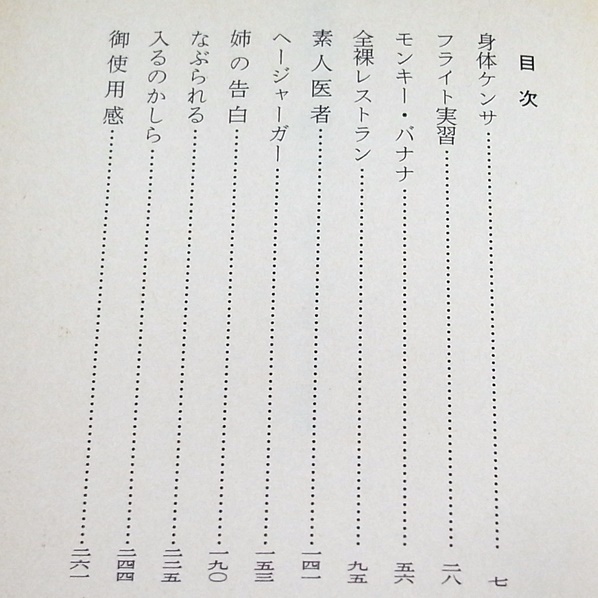 目次
身体ケンサ……七
フライト実習……二八
モンキー・バナナ……五六
全裸レストラン……九五
素人医者……一四一
ヘージャーガー……一五三
姉の告白……一九〇
なぶられる……二二五
入るのかしら……二四四
御使用感……二六一